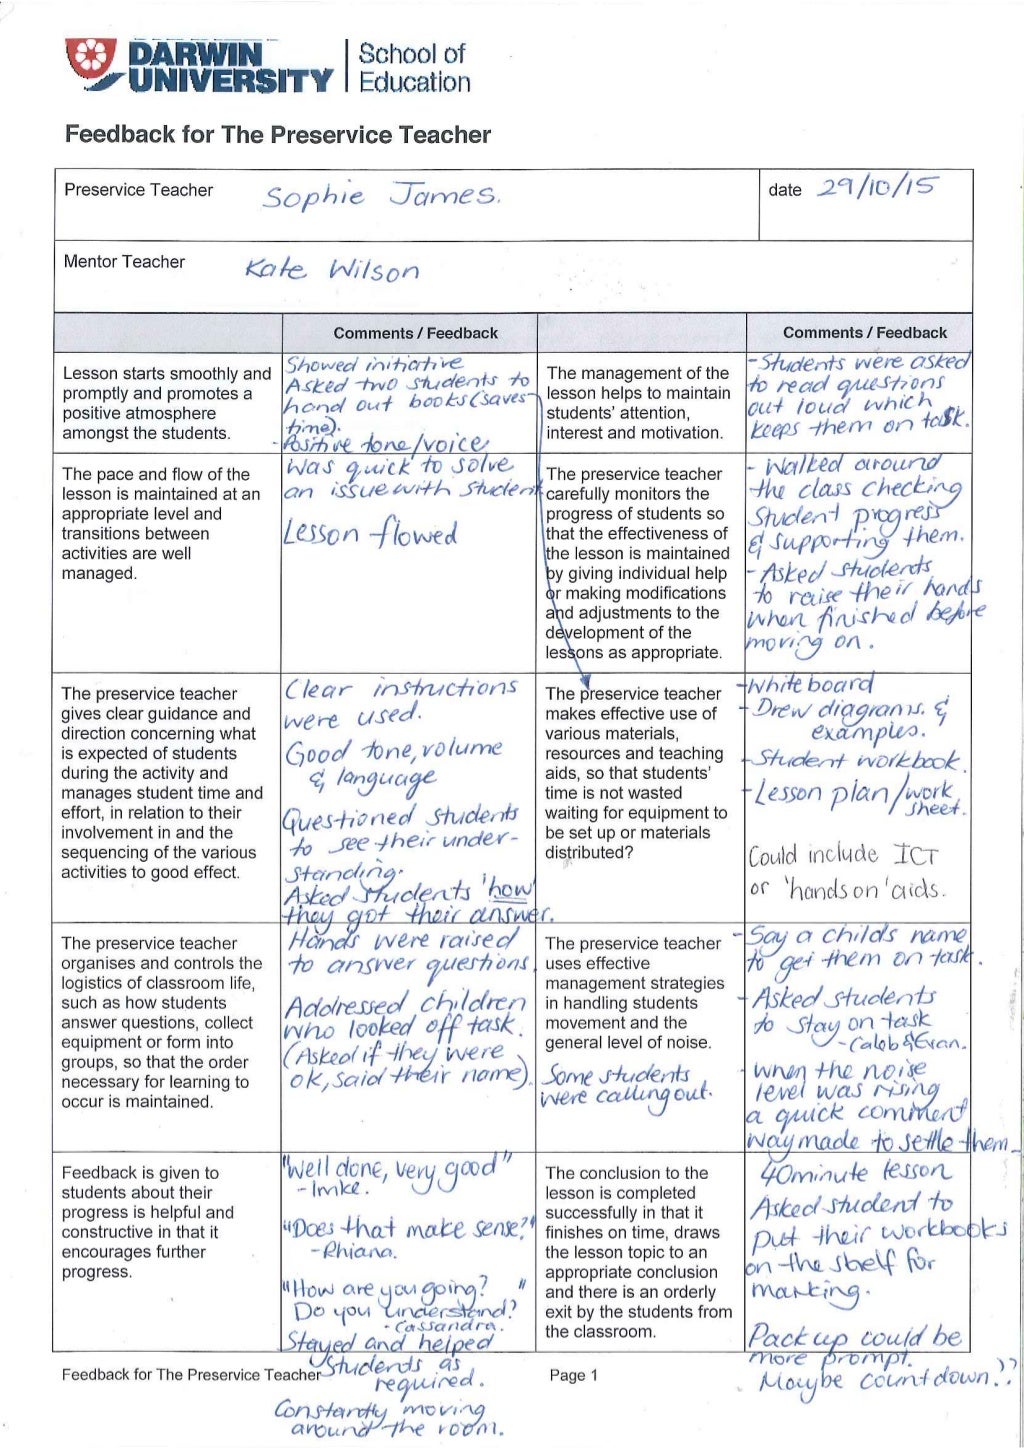 DARWIN
UNIVERSITY
School of
Education
Feedback for The Preservice Teacher
Preservice Teacher Sophie James. date 29/10/15
Mentor Teacher Kate Wilson
Comments / Feedback
Comments / Feedback
Lesson starts smoothly and
promptly and promotes a
positive atmosphere
amongst the students.
Showed initiative
Asked two students to
hand out books (saves
time).
- Positive tone/voice
The management of the
lesson helps to maintain
students' attention,
interest and motivation.
- Students were asked
to read questions
out loud which
keeps them on task.
The pace and flow of the
lesson is maintained at an
appropriate level and
transitions between
activities are well
managed.
Was quick to solve
an issue with student
Lesson flowed
The preservice teacher
carefully monitors the
progress of students so
that the effectiveness of
the lesson is maintained
by giving individual help
or making modifications
and adjustments to the
development of the
lessons as appropriate.
- Walked around
the class checking
Student progress
& supporting them.
- Asked students
to raise their hands
when finished before
moving on.
The preservice teacher
gives clear guidance and
direction concerning what
is expected of students
during the activity and
manages student time and
effort, in relation to their
involvement in and the
sequencing of the various
activities to good effect.
Clear instructions
were used.
Good tone, volume
& language
Questioned students
to see their under-
standing.
Asked students 'how'
they got their answer.
The preservice teacher
makes effective use of
various materials,
resources and teaching
aids, so that students'
time is not wasted
waiting for equipment to
be set up or materials
distributed?
- Whiteboard
- Drew diagrams. &
examples.
- Student workbook.
- Lesson plan/work
sheet.
Could include ICT
or 'hands on' aids.
The preservice teacher
organises and controls the
logistics of classroom life,
such as how students
answer questions, collect
equipment or form into
groups, so that the order
necessary for learning to
occur is maintained.
Hands were raised
to answer questions.
Addressed children
who looked off task.
(Asked if they were
ok, said their name).
The preservice teacher
uses effective
management strategies
in handling students
movement and the
general level of noise.
Some students
were calling out.
- Say a childs name
to get them on task.
- Asked students
to stay on task
- Caleb & Evan.
- when the noise
level was rising
a quick comment
way made to settle them
Feedback is given to
students about their
progress is helpful and
constructive in that it
encourages further
progress.
"Well done, very good"
- Imke.
"Does that make sense?"
- Rhiana.
"How are you going? "
Do you understand?
- Cassandra.
Stayed and helped
Students as
required.
Constantly moving
around the room.
The conclusion to the
lesson is completed
successfully in that it
finishes on time, draws
the lesson topic to an
appropriate conclusion
and there is an orderly
exit by the students from
the classroom.
40 minute lesson
Asked student to
put their workbooks
on the shelf for
marking.
Pack up could be
more prompt.
Maybe countdown??
Feedback for The Preservice Teacher
Page 1